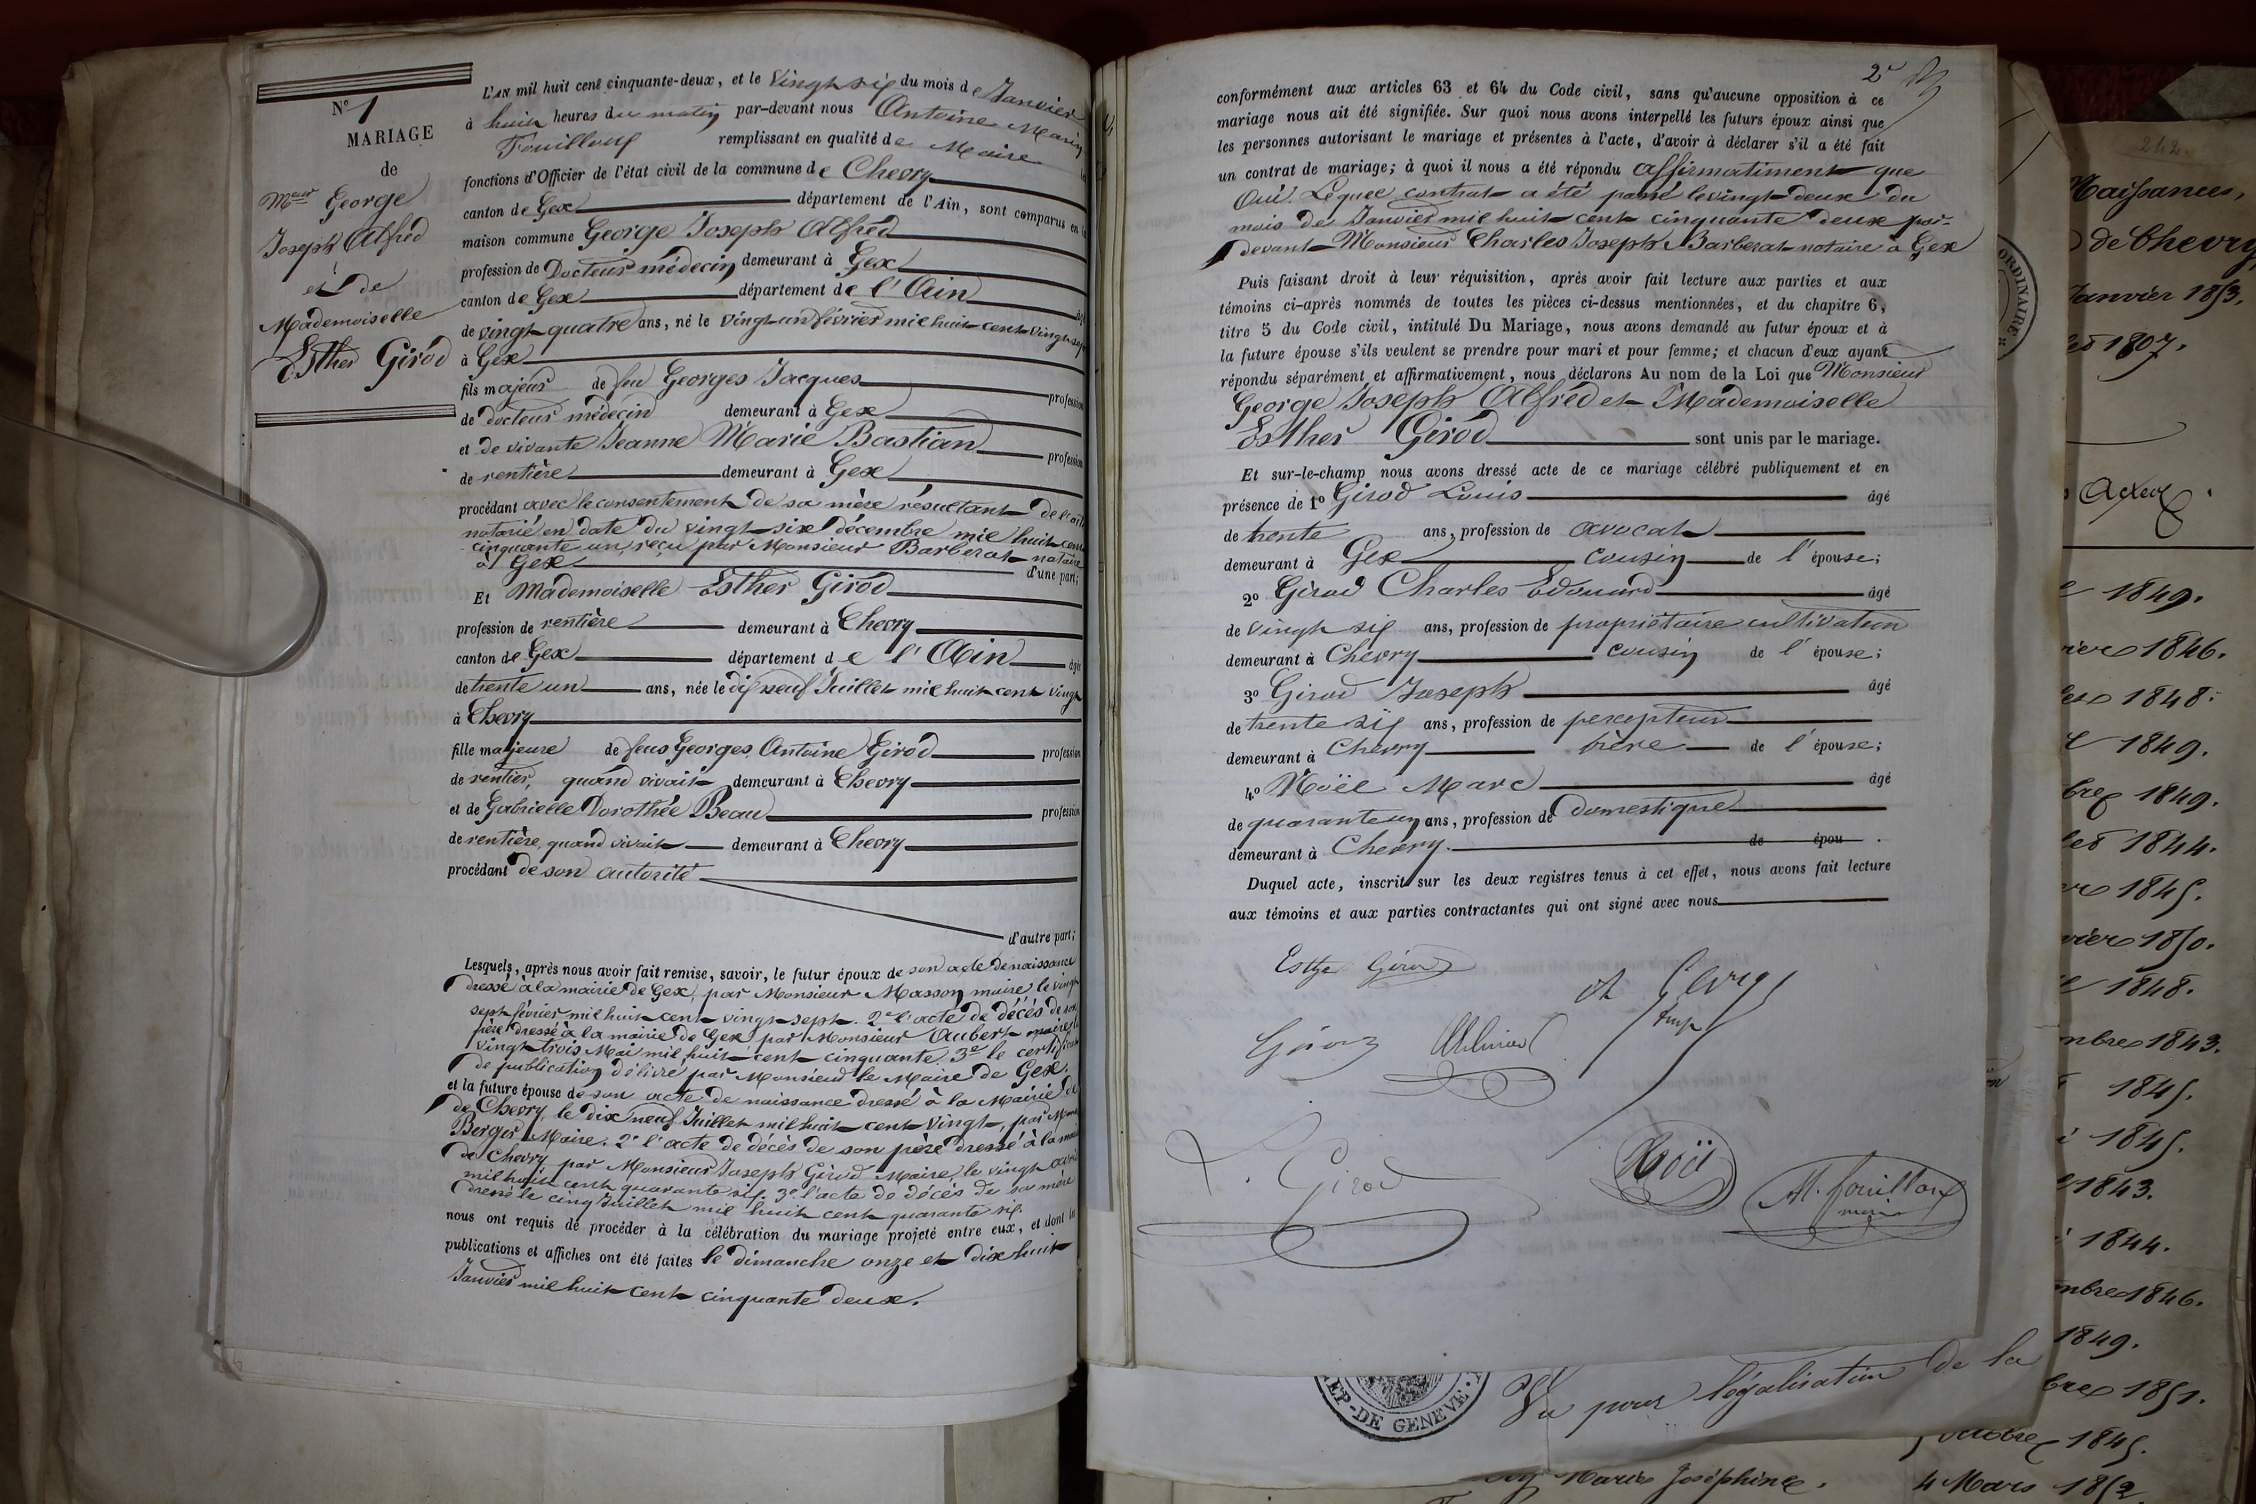 N° 1
MARIAGE
de
Mr George
Joseph Alfred
et de
Mademoiselle
Esther Girod
L'AN mil huit cent cinquante-deux, et le vingt six du mois de Janvier
à huit heures du matin par-devant nous Antoine Marin
Fouilloux remplissant en qualité de Maire
fonctions d'Officier de l'état civil de la commune de Chevry
canton de Gex département de l'Ain, sont comparus en la
maison commune George Joseph Alfred
profession de Docteur médecin demeurant à Gex
canton de Gex département de l'Ain âgé
de vingt quatre ans, né le vingt un février mil huit cent vingt sept
à Gex
fils majeur de feu Georges Jacques profession
de docteur médecin demeurant à Gex
et de vivante Jeanne Marie Bastian profession
de rentière demeurant à Gex
procédant avec le consentement de sa mère résultant de l'acte
notarié en date du vingt-six décembre mil huit cent
cinquante un, reçu par Monsieur Barberat notaire
à Gex d'une part;
Et Mademoiselle Esther Girod
profession de rentière demeurant à Chevry
canton de Gex département de l'Ain âgée
de trente un ans, née le dix neuf Juillet mil huit cent vingt
à Chevry
fille majeure de feus Georges Antoine Girod profession
de rentier, quand vivait demeurant à Chevry
et de Gabrielle Dorothée Beau profession
de rentière, quand vivait demeurant à Chevry
procédant de son autorité
d'autre part;
Lesquels, après nous avoir fait remise, savoir, le futur époux de son acte de naissance
dressé à la mairie de Gex, par Monsieur Masson maire le vingt
sept février mil huit cent vingt-sept. 2° l'acte de décès de son
père dressé à la mairie de Gex par Monsieur Aubert maire le
vingt-trois Mai mil huit cent cinquante. 3° le certificat
de publication délivré par Monsieur le Maire de Gex.
et la future épouse de son acte de naissance dressé à la Mairie de
de Chevry, le dix neuf Juillet mil huit cent vingt, par Mr
Berger Maire. 2° l'acte de décès de son père dressé à la mairie
de Chevry par Monsieur Joseph Girod Maire, le vingt avril
mil huit cent quarante six. 3° l'acte de décès de sa mère
dressé le cinq Juillet mil huit cent quarante six.
nous ont requis de procéder à la célébration du mariage projeté entre eux, et dont les
publications et affiches ont été faites le dimanche onze et dix huit
Janvier mil huit cent cinquante deux.
2e
conformément aux articles 63 et 64 du Code civil, sans qu'aucune opposition à ce
mariage nous ait été signifiée. Sur quoi nous avons interpellé les futurs époux ainsi que
les personnes autorisant le mariage et présentes à l'acte, d'avoir à déclarer s'il a été fait
un contrat de mariage; à quoi il nous a été répondu affirmatiment que
Oui. Lequel contrat a été passé le vingt-deux du
mois de Janvier mil huit cent cinquante deux par-
devant Monsieur Charles Joseph Barberat notaire à Gex
Puis faisant droit à leur réquisition, après avoir fait lecture aux parties et aux
témoins ci-après nommés de toutes les pièces ci-dessus mentionnées, et du chapitre 6,
titre 5 du Code civil, intitulé Du Mariage, nous avons demandé au futur époux et à
la future épouse s'ils veulent se prendre pour mari et pour femme; et chacun d'eux ayant
répondu séparément et affirmativement, nous déclarons Au nom de la Loi que Monsieur
George Joseph Alfred et Mademoiselle
Esther Girod sont unis par le mariage.
Et sur-le-champ nous avons dressé acte de ce mariage célébré publiquement et en
présence de 1° Girod Louis âgé
de trente ans, profession de avocat
demeurant à Gex cousin de l'épouse;
2° Girod Charles Edouard âgé
de vingt six ans, profession de propriétaire cultivateur
demeurant à Chevry cousin de l'épouse;
3° Girod Joseph âgé
de trente six ans, profession de percepteur
demeurant à Chevry frère de l'épouse;
4° Noël Marc âgé
de quarante un ans, profession de Domestique
demeurant à Chevry. de épou .
Duquel acte, inscrit sur les deux registres tenus à cet effet, nous avons fait lecture
aux témoins et aux parties contractantes qui ont signé avec nous
Esther Girod
Girod
L. Girod
Noël
M. Fouilloux
maire
ORDINAIRE
DEP-DE GENEVE
Vu pour légalisation de la
Marie Joséphine.
4 Mars 1852
242
Naissances,
de Chevry
Janvier 1853.
1807.
1849.
1846.
1848.
1849.
1849.
1844.
1845.
1850.
1848.
1843.
1845.
1845.
1843.
1844.
1846.
1849.
1851.
octobre 1845.